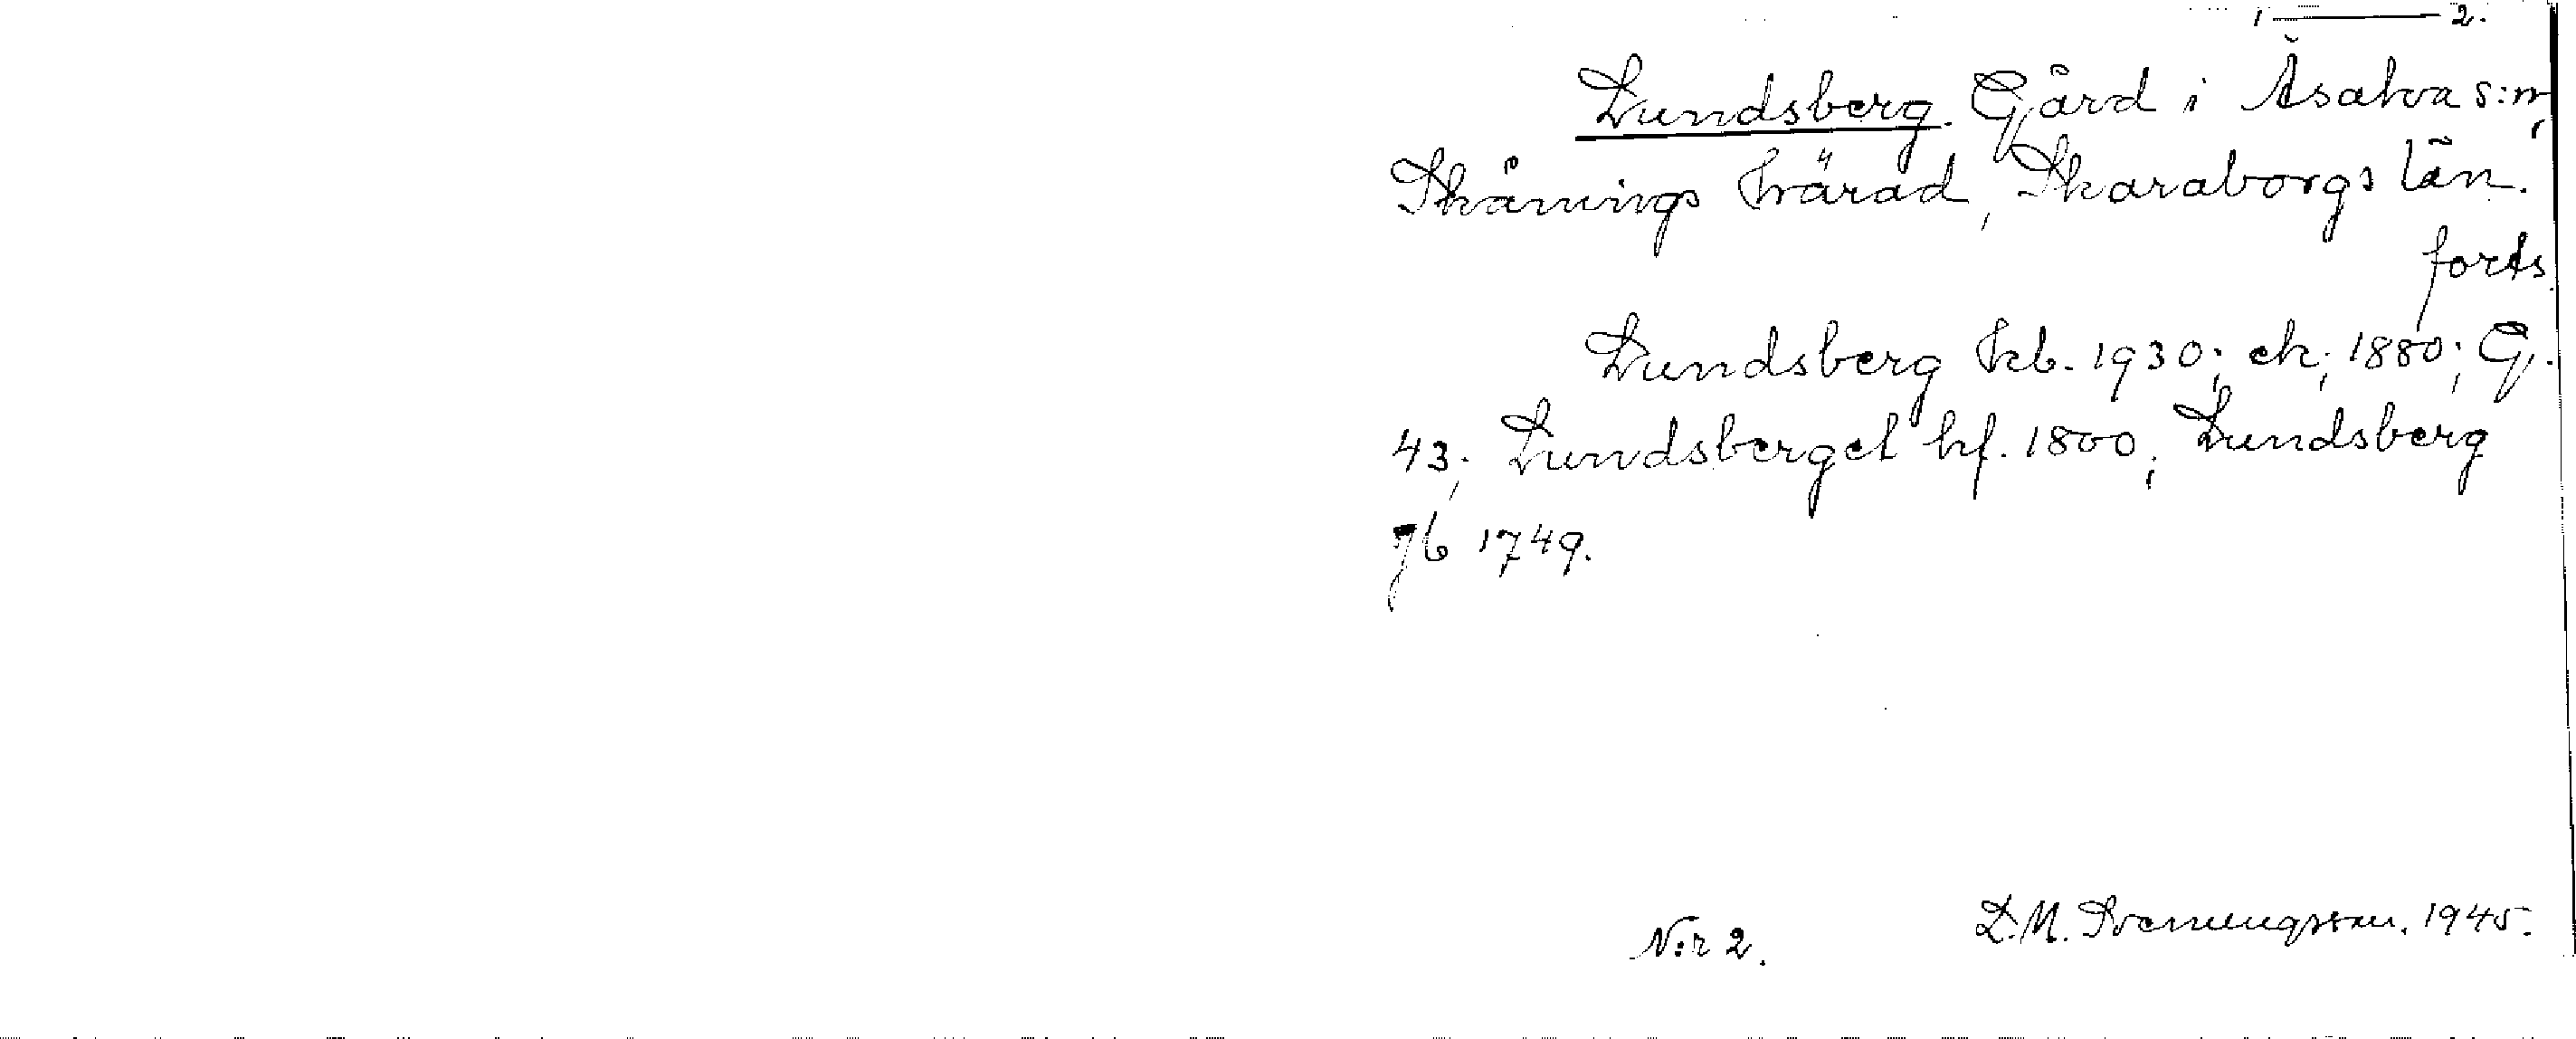 1 — 2.
Lundsberg. Gård i Åsaka s:n,
Skånings härad, Skaraborgs län.
forts.
Lundsberg kb. 1930; ek; 1880; G.
43; Lundsberget hf. 1800; Lundsberg
jb 1749.
N:r 2. D.M. Svenungsson. 1945.